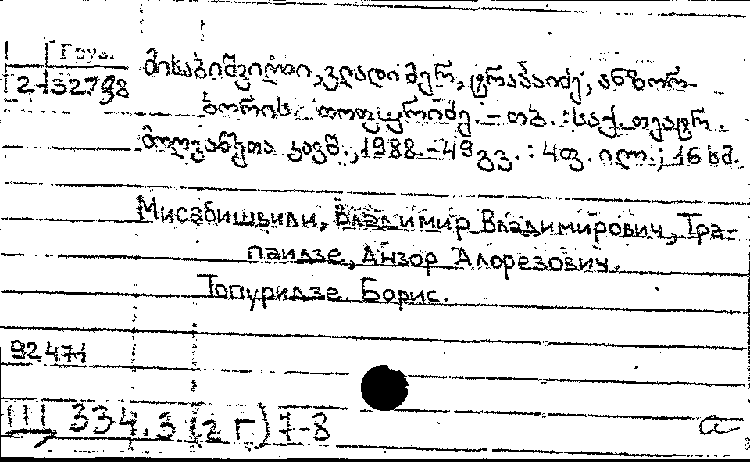 Груз.
2-32798
მისაბიშვილი, ვლადიმერ, ტრაპაიძე, ანზორ
ბორის თოფურიძე. – თბ. : საქ. თეატრ.
მოღვაწეთა კავშ., 1988 – 49 გვ. : 4 ფ. ილ. ; 16 სმ.
Мисабишвили, Владимир Владимирович, Тра-
паидзе, Анзор Алорезович.
Топуридзе Борис.
92471
III, 334.3 (2Г) 7-8
a